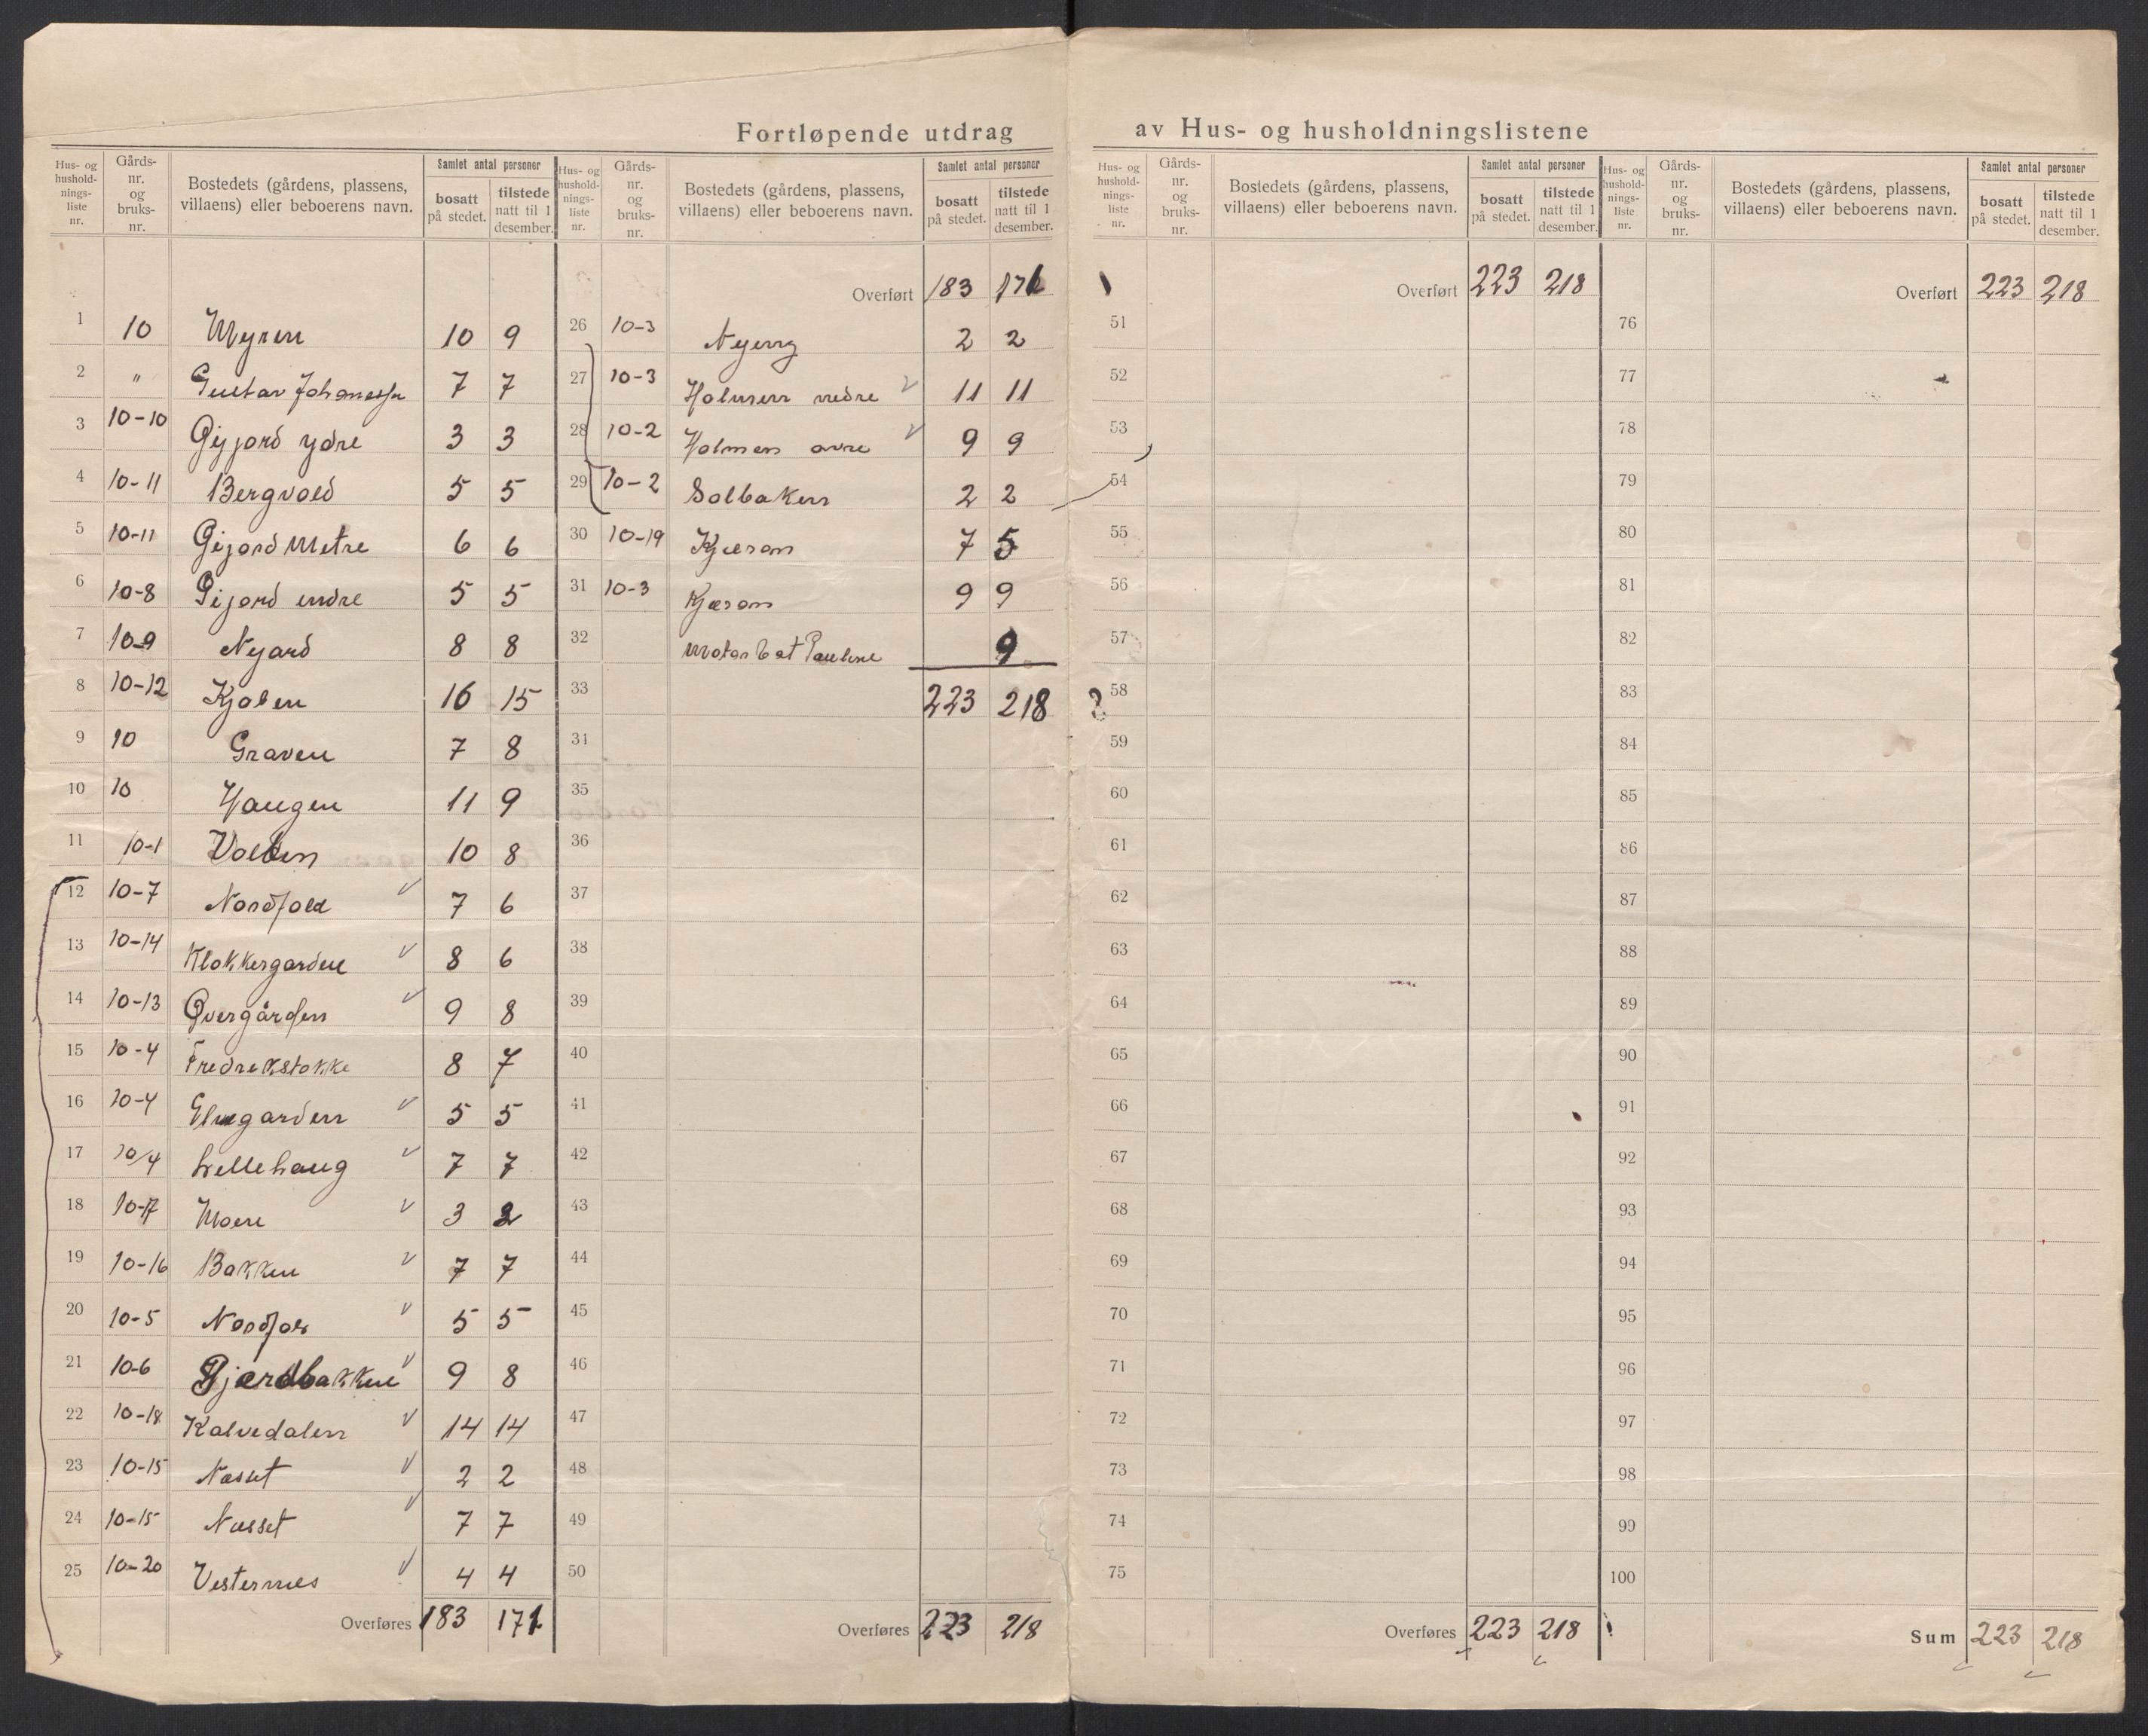 Fortløpende utdrag av Hus- og husholdningslistene
Hus- og hushold-nings-liste nr. | Gårds-nr. og bruks-nr. | Bostedets (gårdens, plassens, villaens) eller beboerens navn. | Samlet antal personer | bosatt på stedet. | tilstede natt til 1 desember.
1 10 Myren 10 9
2 " Gustav Johanessen 7 7
3 10-10 Gijord ydre 3 3
4 10-11 Bergvold 5 5
5 10-11 Gijord Metre 6 6
6 10-8 Gijord indre 5 5
7 10-9 Nyard 8 8
8 10-12 Kjolen 16 15
9 10 Graven 7 8
10 10 Haugen 11 9
11 10-1 Volden 10 8
12 10-7 Nordfold 7 6
13 10-14 Klokkergarden 8 6
14 10-13 Øvergården 9 8
15 10-4 Fredrekstokke 8 7
16 10-4 garden 5 5
17 10/4 Lellehaug 7 7
18 10-17 Moen 3 2
19 10-16 Bakken 7 7
20 10-5 Nordfol 5 5
21 10-6 Gjærdbakken 9 8
22 10-18 Kalvedalen 14 14
23 10-15 Næsset 2 2
24 10-15 Næsset 7 7
25 10-20 Vesternes 4 4
Overføres 183 171
Hus- og hushold-nings-liste nr. | Gårds-nr. og bruks-nr. | Bostedets (gårdens, plassens, villaens) eller beboerens navn. | Samlet antal personer | bosatt på stedet. | tilstede natt til 1 desember.
Overført 183 171
26 10-3 Nyeng 2 2
27 10-3 Holmen nedre 11 11
28 10-2 Holmen øvre 9 9
29 10-2 Solbaken 2 2
30 10-19 Kjæran 7 5
31 10-3 Kjæran 9 9
32 Motorbat Pauline 9
33 223 218
34
35
36
37
38
39
40
41
42
43
44
45
46
47
48
49
50
Overføres 223 218
Hus- og hushold-nings-liste nr. | Gårds-nr. og bruks-nr. | Bostedets (gårdens, plassens, villaens) eller beboerens navn. | Samlet antal personer | bosatt på stedet. | tilstede natt til 1 desember.
Overført 223 218
51
52
53
54
55
56
57
58
59
60
61
62
63
64
65
66
67
68
69
70
71
72
73
74
75
Overføres 223 218
Hus- og hushold-nings-liste nr. | Gårds-nr. og bruks-nr. | Bostedets (gårdens, plassens, villaens) eller beboerens navn. | Samlet antal personer | bosatt på stedet. | tilstede natt til 1 desember.
Overført 223 218
76
77
78
79
80
81
82
83
84
85
86
87
88
89
90
91
92
93
94
95
96
97
98
99
100
Sum 223 218